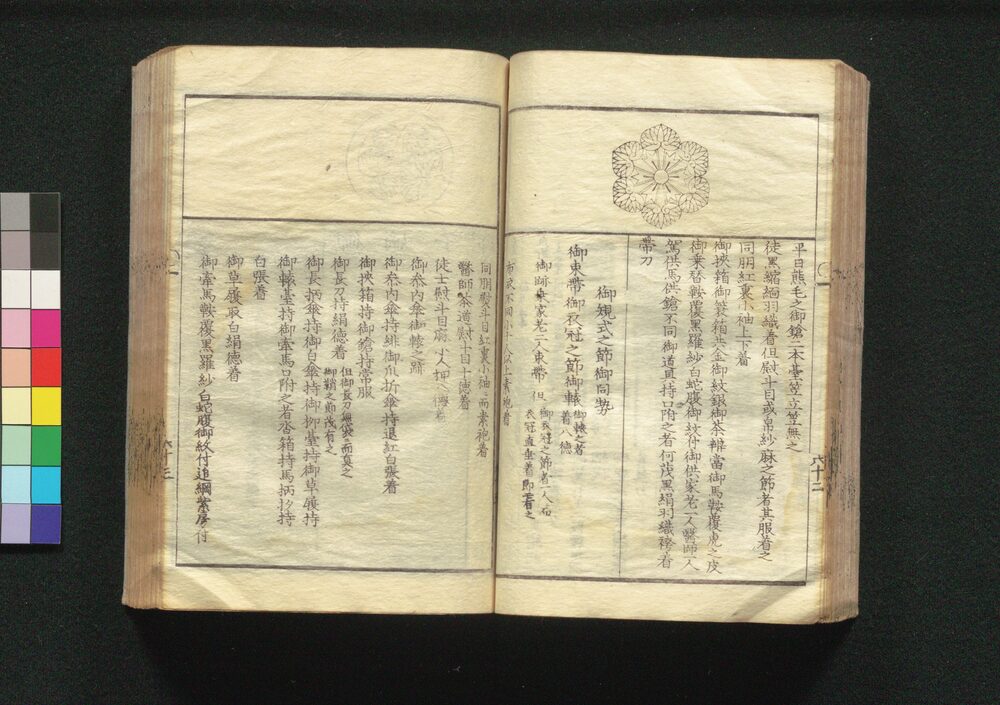 平日熊毛之御鎗二本臺笠立笠無之
徒黒縮緬羽織着但熨斗目或帛紗麻之節者其服着之
同朋紅裏小袖上下着
御挾箱御簑箱共金御紋銀御茶辨當御馬鞍覆虎之皮
御乗替鞍覆黒羅紗白蛇腹御紋付御供家老一人醫師一人
駕供馬供鎗不同御道具持口附之者何茂黒絹羽織袴着
帯刀
御規式之節御同勢
御束帯御衣冠之節御轅 御轅之者着八徳
御跡乗家老二人束帯 但 御衣冠之節者一人
衣冠直垂着
六十二
同朋熨斗目紅裏小袖 素袍着
醫師茶道熨斗目十徳着
徒士熨斗目麻
御参内傘御轅之跡
御参内傘持緋御爪折傘持退紅白張着
御挾箱持御鎗持常服
御長刀持絹徳着 但御長刀無袋 而真之
御鞘之節茂有之
御長柄傘持御白傘持御柳臺持御草履持
御轅臺持御牽馬口附之者沓箱持馬柄杓持
白張着
御草履取白絹徳着
御牽馬鞍覆黒羅紗白蛇腹御紋付追綱紫房付
六十三